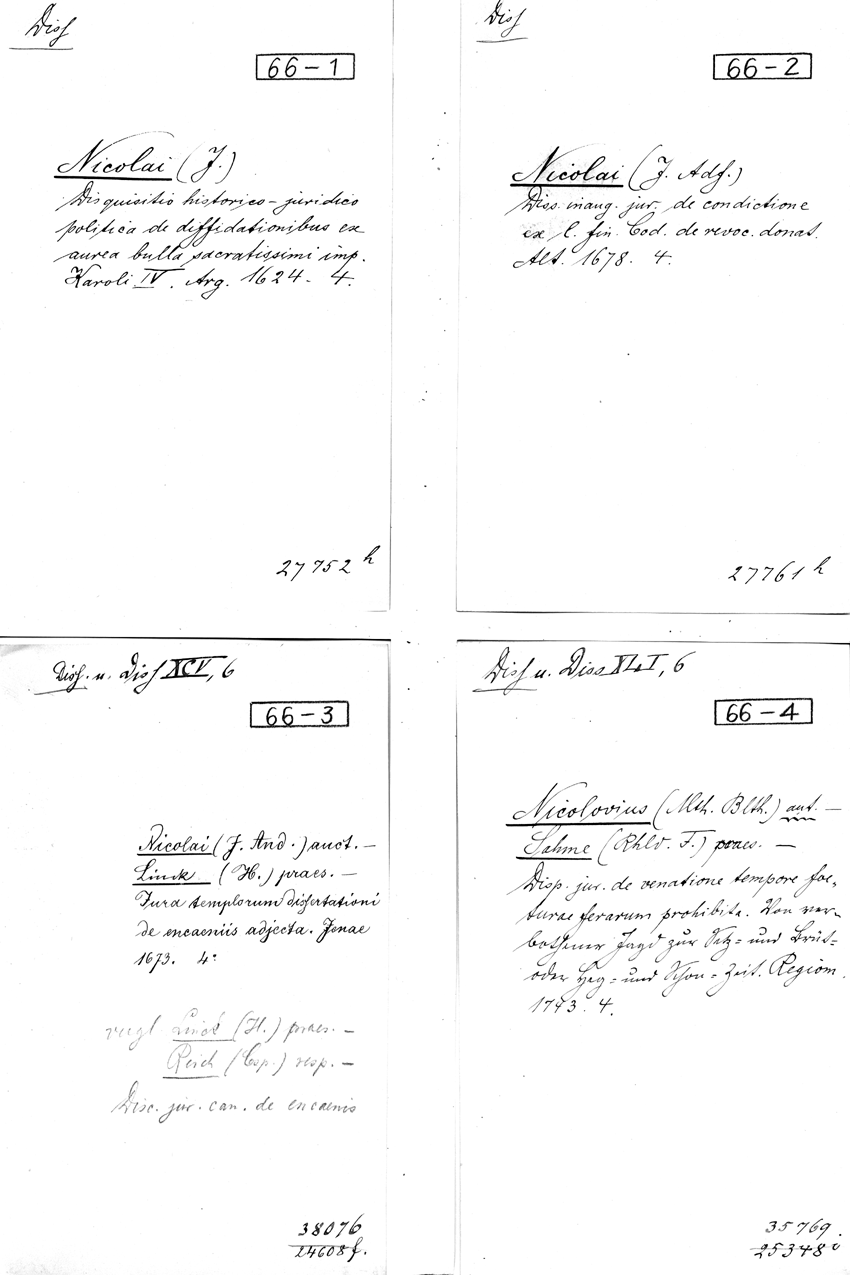 Diss
66-1
Nicolai (J.)
Disquisitio historico-juridico
politica de diffidationibus ex
aurea bulla sacratissimi imp.
Karoli IV. Arg. 1624. 4.
27752 h
Diss
66-2
Nicolai (J. Adf.)
Diss. inaug. jur. de condictione
ex l. fin. Cod. de revoc. donat.
Alt. 1678. 4.
27761 h
Diss. u. Diss XCV, 6
66-3
Nicolai (J. And.) auct. —
Linck (H.) praes. —
Jura templorum dissertationi
de encaeniis adjecta. Jenae
1673. 4°
vergl Linck (H.) praes. —
Reich (Csp.) resp. —
Disc. jur. can. de encaenis
38076
24608 f.
Diss u. Diss XLI, 6
66-4
Nicolovius (Mth. Blth.) aut. —
Sahme (Rhld. F.) praes. —
Disp. jur. de venatione tempore foe-
turae ferarum prohibita. Von ver-
bothener Jagd zur Setz- und Brüt-
oder Heg- und Schon-Zeit. Regiom.
1743. 4.
35769.
25348